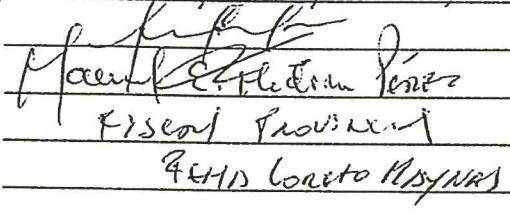 Manuel E. Medina Pérez
Fiscal Provincial
FEMA Loreto Maynas